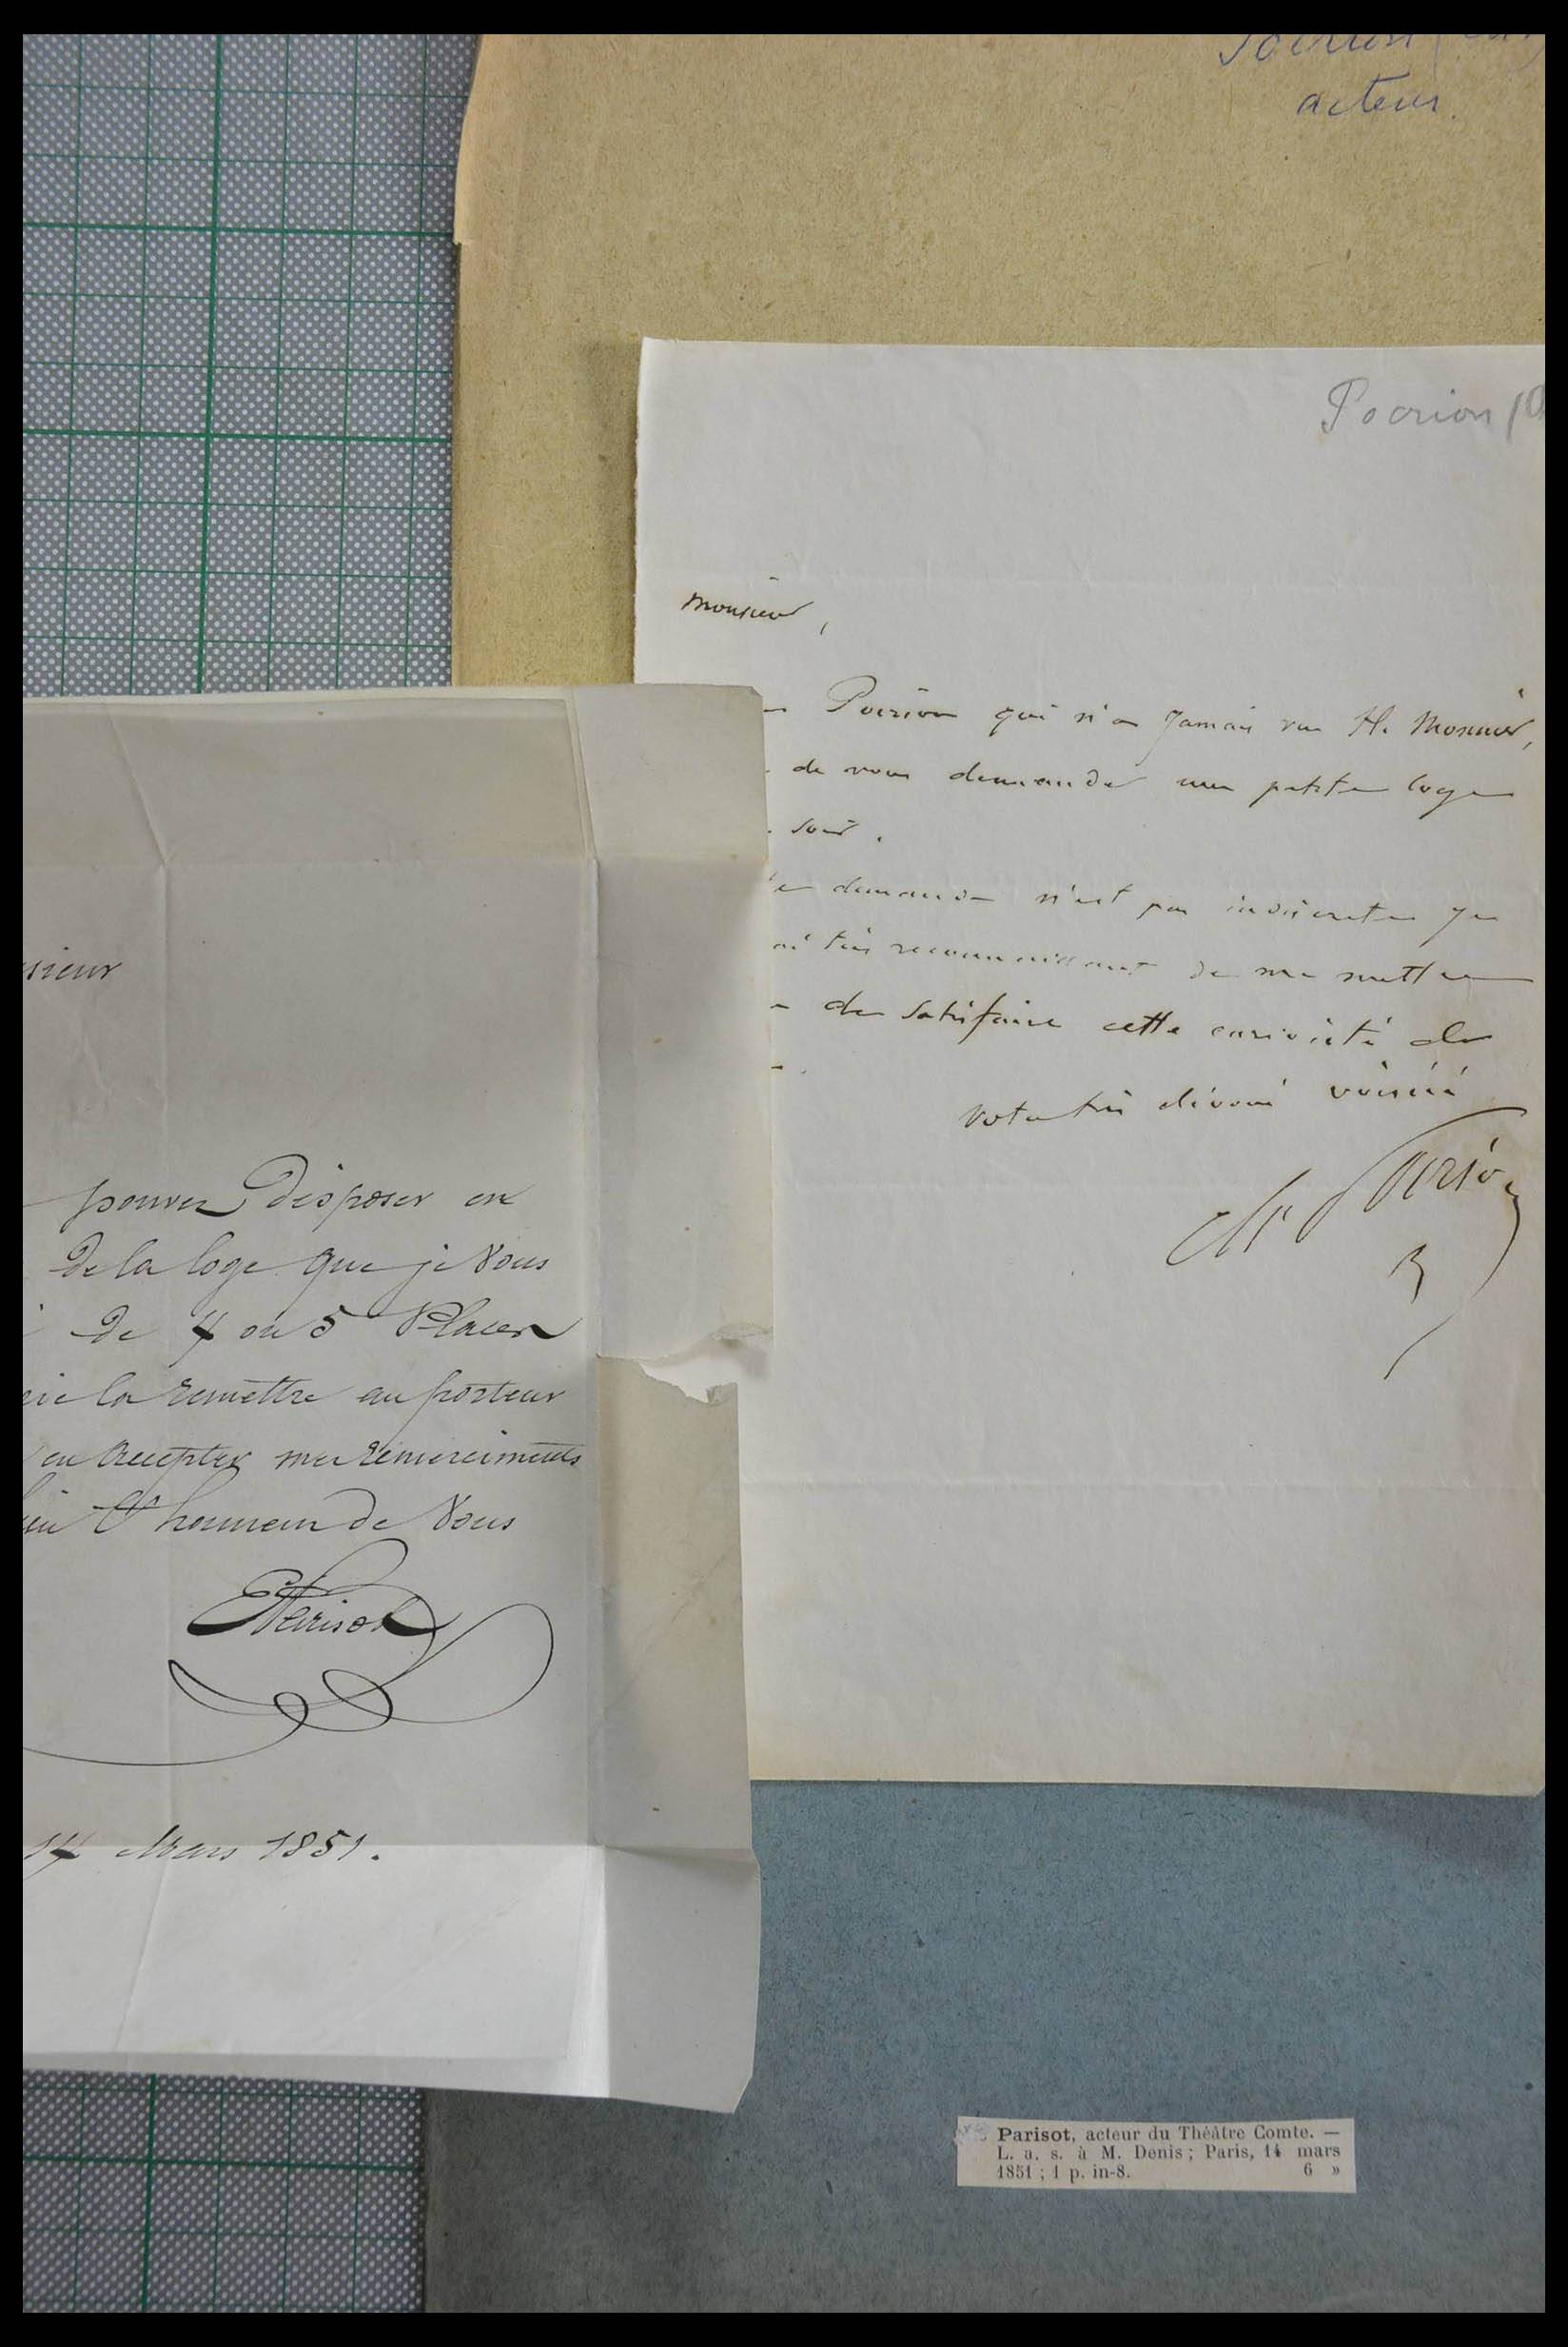 acteur
Poirion
Monsieur,
Poirion qui n'a jamais vu H. Monnier,
de vous demander une petite loge
soir.
demande n'est pas indiscrete je
très reconnaissant de me mettre
de satisfaire cette curiosité de
votre très dévoué
Ch Poirion
sieur
pouvez disposer en
De la loge que je Vous
De 4 ou 5 Places
la remettre au porteur
en accepter mes remerciments
l'honneur de Vous
EParisot
14 Mars 1851.
Parisot, acteur du Théâtre Comte. —
L. a. s. à M. Denis ; Paris, 14 mars
1851 ; 1 p. in-8. 6 »